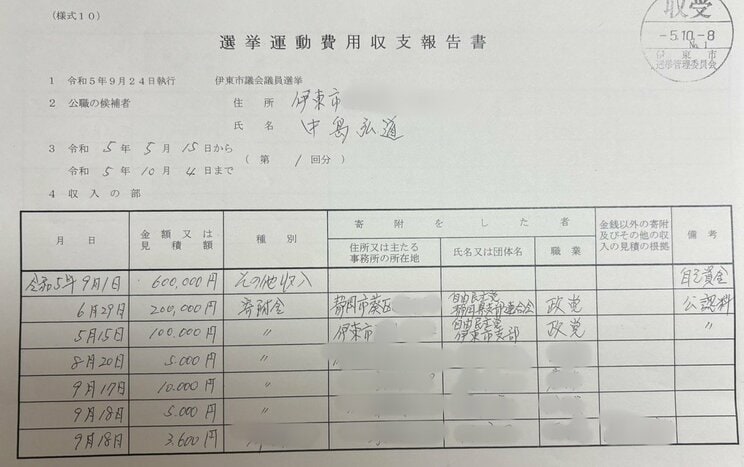 (様式10)
収受
-5.10.-8
No.1
伊東市
選挙管理委員会
選挙運動費用収支報告書
1 令和5年9月24日執行 伊東市議会議員選挙
2 公職の候補者 住所 伊東市
氏名 中島弘道
3 令和 5年 5月 15日から
(第 1回分)
令和 5年 10月 4日まで
4 収入の部
月日 金額又は見積額 種別 寄附をした者 住所又は主たる事務所の所在地 氏名又は団体名 職業 金銭以外の寄附及びその他の収入の見積の根拠 備考
令和5年9月1日 600,000円 その他収入 自己資金
6月29日 200,000円 寄附金 静岡市葵区 自由民主党静岡県支部連合会 政党 公認料
5月15日 100,000円 〃 伊東市 自由民主党伊東市支部 政党 〃
8月20日 5,000円 〃
9月17日 10,000円 〃
9月18日 5,000円 〃
9月18日 3,600円